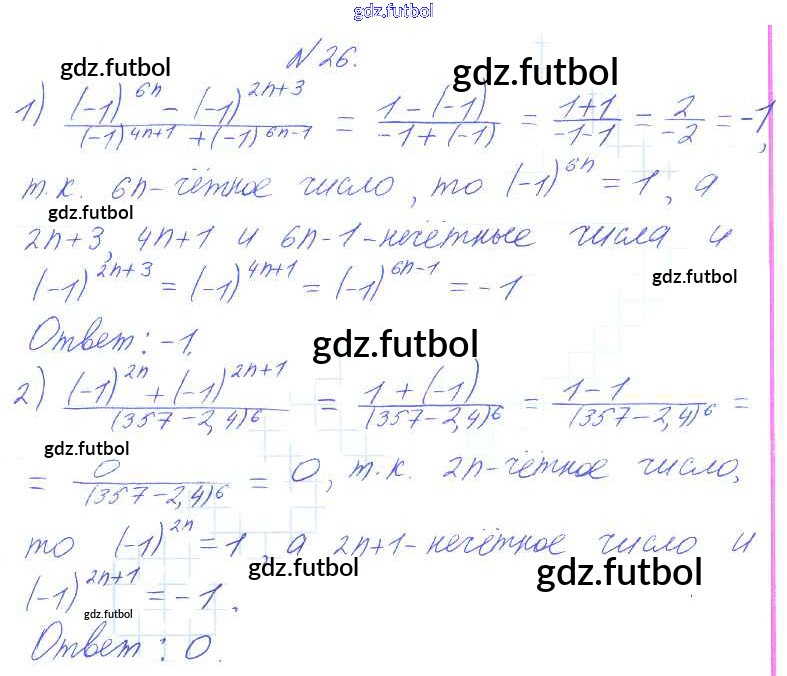 gdz.futbol
N 26.
gdz.futbol gdz.futbol
1) ((-1)^{6n} - (-1)^{2n+3}) / ((-1)^{4n+1} + (-1)^{6n-1}) = (1 - (-1)) / (-1 + (-1)) = (1+1) / (-1-1) = 2 / -2 = -1,
т.к. 6n-чётное число, то (-1)^{6n} = 1, а
gdz.futbol
2n+3, 4n+1 и 6n-1-нечётные числа и
(-1)^{2n+3} = (-1)^{4n+1} = (-1)^{6n-1} = -1
gdz.futbol
Ответ: -1.
gdz.futbol
2) ((-1)^{2n} + (-1)^{2n+1}) / (357-2,4)^6 = (1 + (-1)) / (357-2,4)^6 = (1-1) / (357-2,4)^6 =
gdz.futbol
= 0 / (357-2,4)^6 = 0, т.к. 2n-чётное число,
то (-1)^{2n} = 1, а 2n+1-нечётное число и
gdz.futbol gdz.futbol
(-1)^{2n+1} = -1.
gdz.futbol
Ответ: 0.